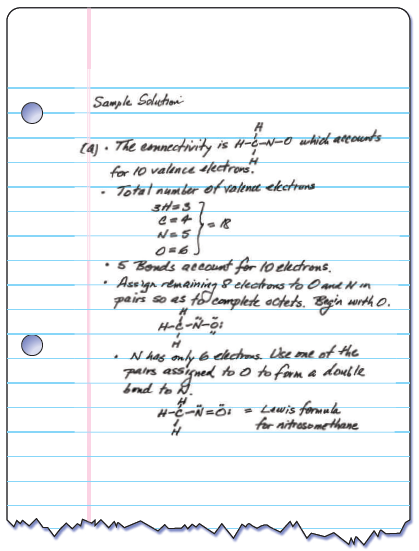 Sample Solution
H
(a) • The connectivity is H-C-N-O which accounts
H
for 10 valence electrons.
• Total number of valence electrons
3H=3
C=4
N=5
O=6
= 18
• 5 Bonds account for 10 electrons.
• Assign remaining 8 electrons to O and N in
pairs so as to complete octets. Begin with O.
H
H-C-N̈-Ö:
H
• N has only 6 electrons. Use one of the
pairs assigned to O to form a double
bond to N.
H
H-C-N̈=Ö: = Lewis formula
H
for nitrosomethane